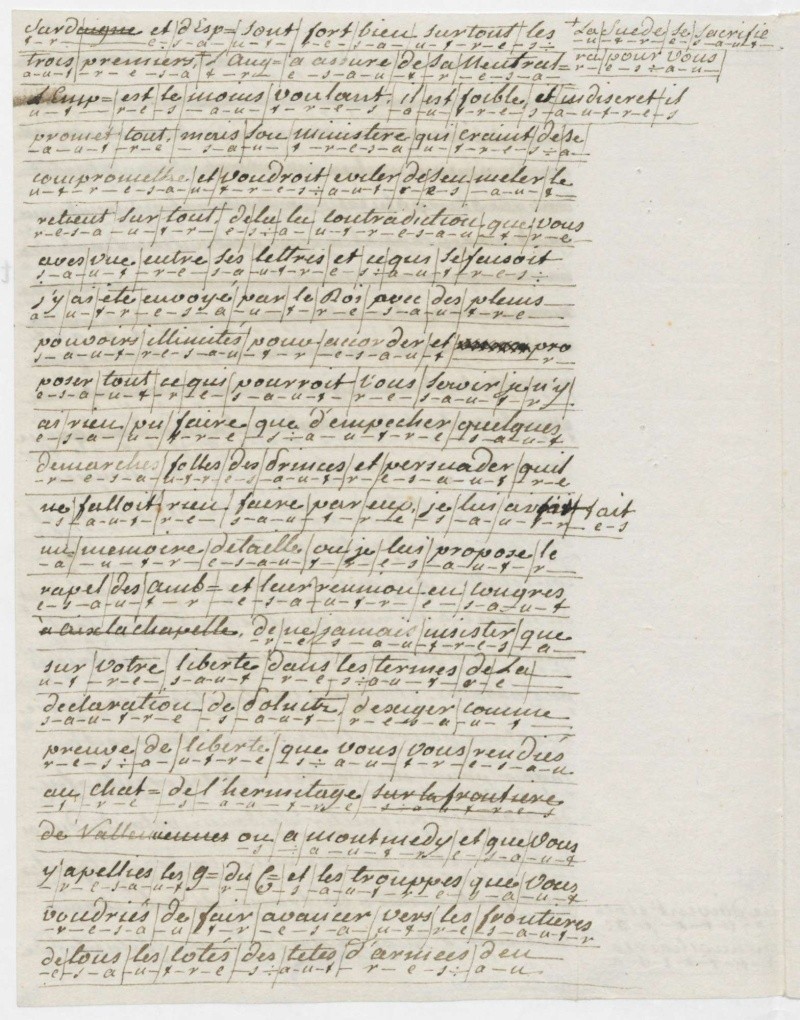 Sardaigne et d'Esp= sont fort bien surtout les + La Suede se sacrifie
trois premiers, L'Ang= a assuré de sa Neutral= ra pour vous
L'Emp= est le moins voulant. il est foible et indiscret il
promet tout, mais son ministere qui craint de se
compromettre et voudroit eviter de s'en meler le
retient sur tout, dela la contradiction que vous
aves vue entre ses lettres et ce qui se faisoit
j'y ai été envoyé par le Roi avec des pleins
pouvoirs illimités pour accorder et pro
poser tout ce qui pourroit vous servir je n'y
ai rien pu faire que d'empecher quelques
demarches folles des Princes et persuader quil
ne falloit rien faire par eux, je lui avois fait
un memoire detaille ou je lui propose le
rapel des amb= et leur reunion en congres
a aix la chapelle, de ne jamais insister que
sur votre liberte dans les termes de La
declaration de Pilnitz, d'exiger comme
preuve de liberte que vous vous rendiés
au chat= de l'hermitage sur la frontiere
de Valleniennes ou a montmedy et que vous
y apellies les g= du C= et les trouppes que vous
voudriés de fair avancer vers les frontieres
de tous les cotés des tetes d'armées d'en